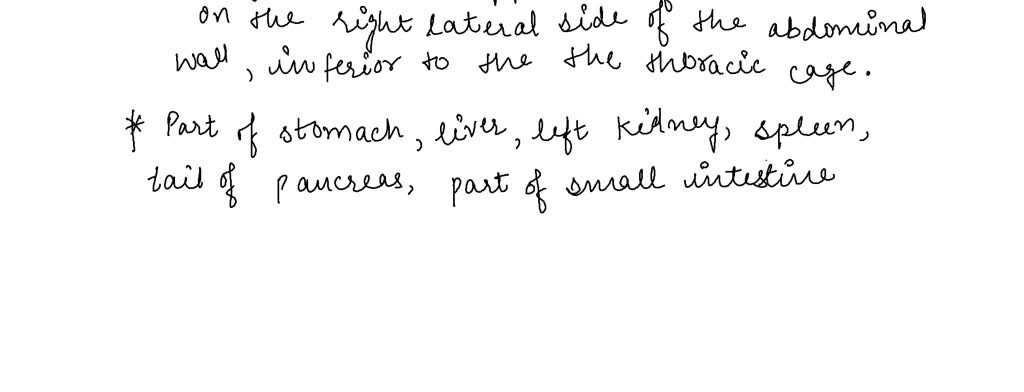 on the right lateral side of the abdominal
wall, inferior to the the thoracic cage.
* Part of stomach, liver, left kidney, spleen,
tail of pancreas, part of small intestine